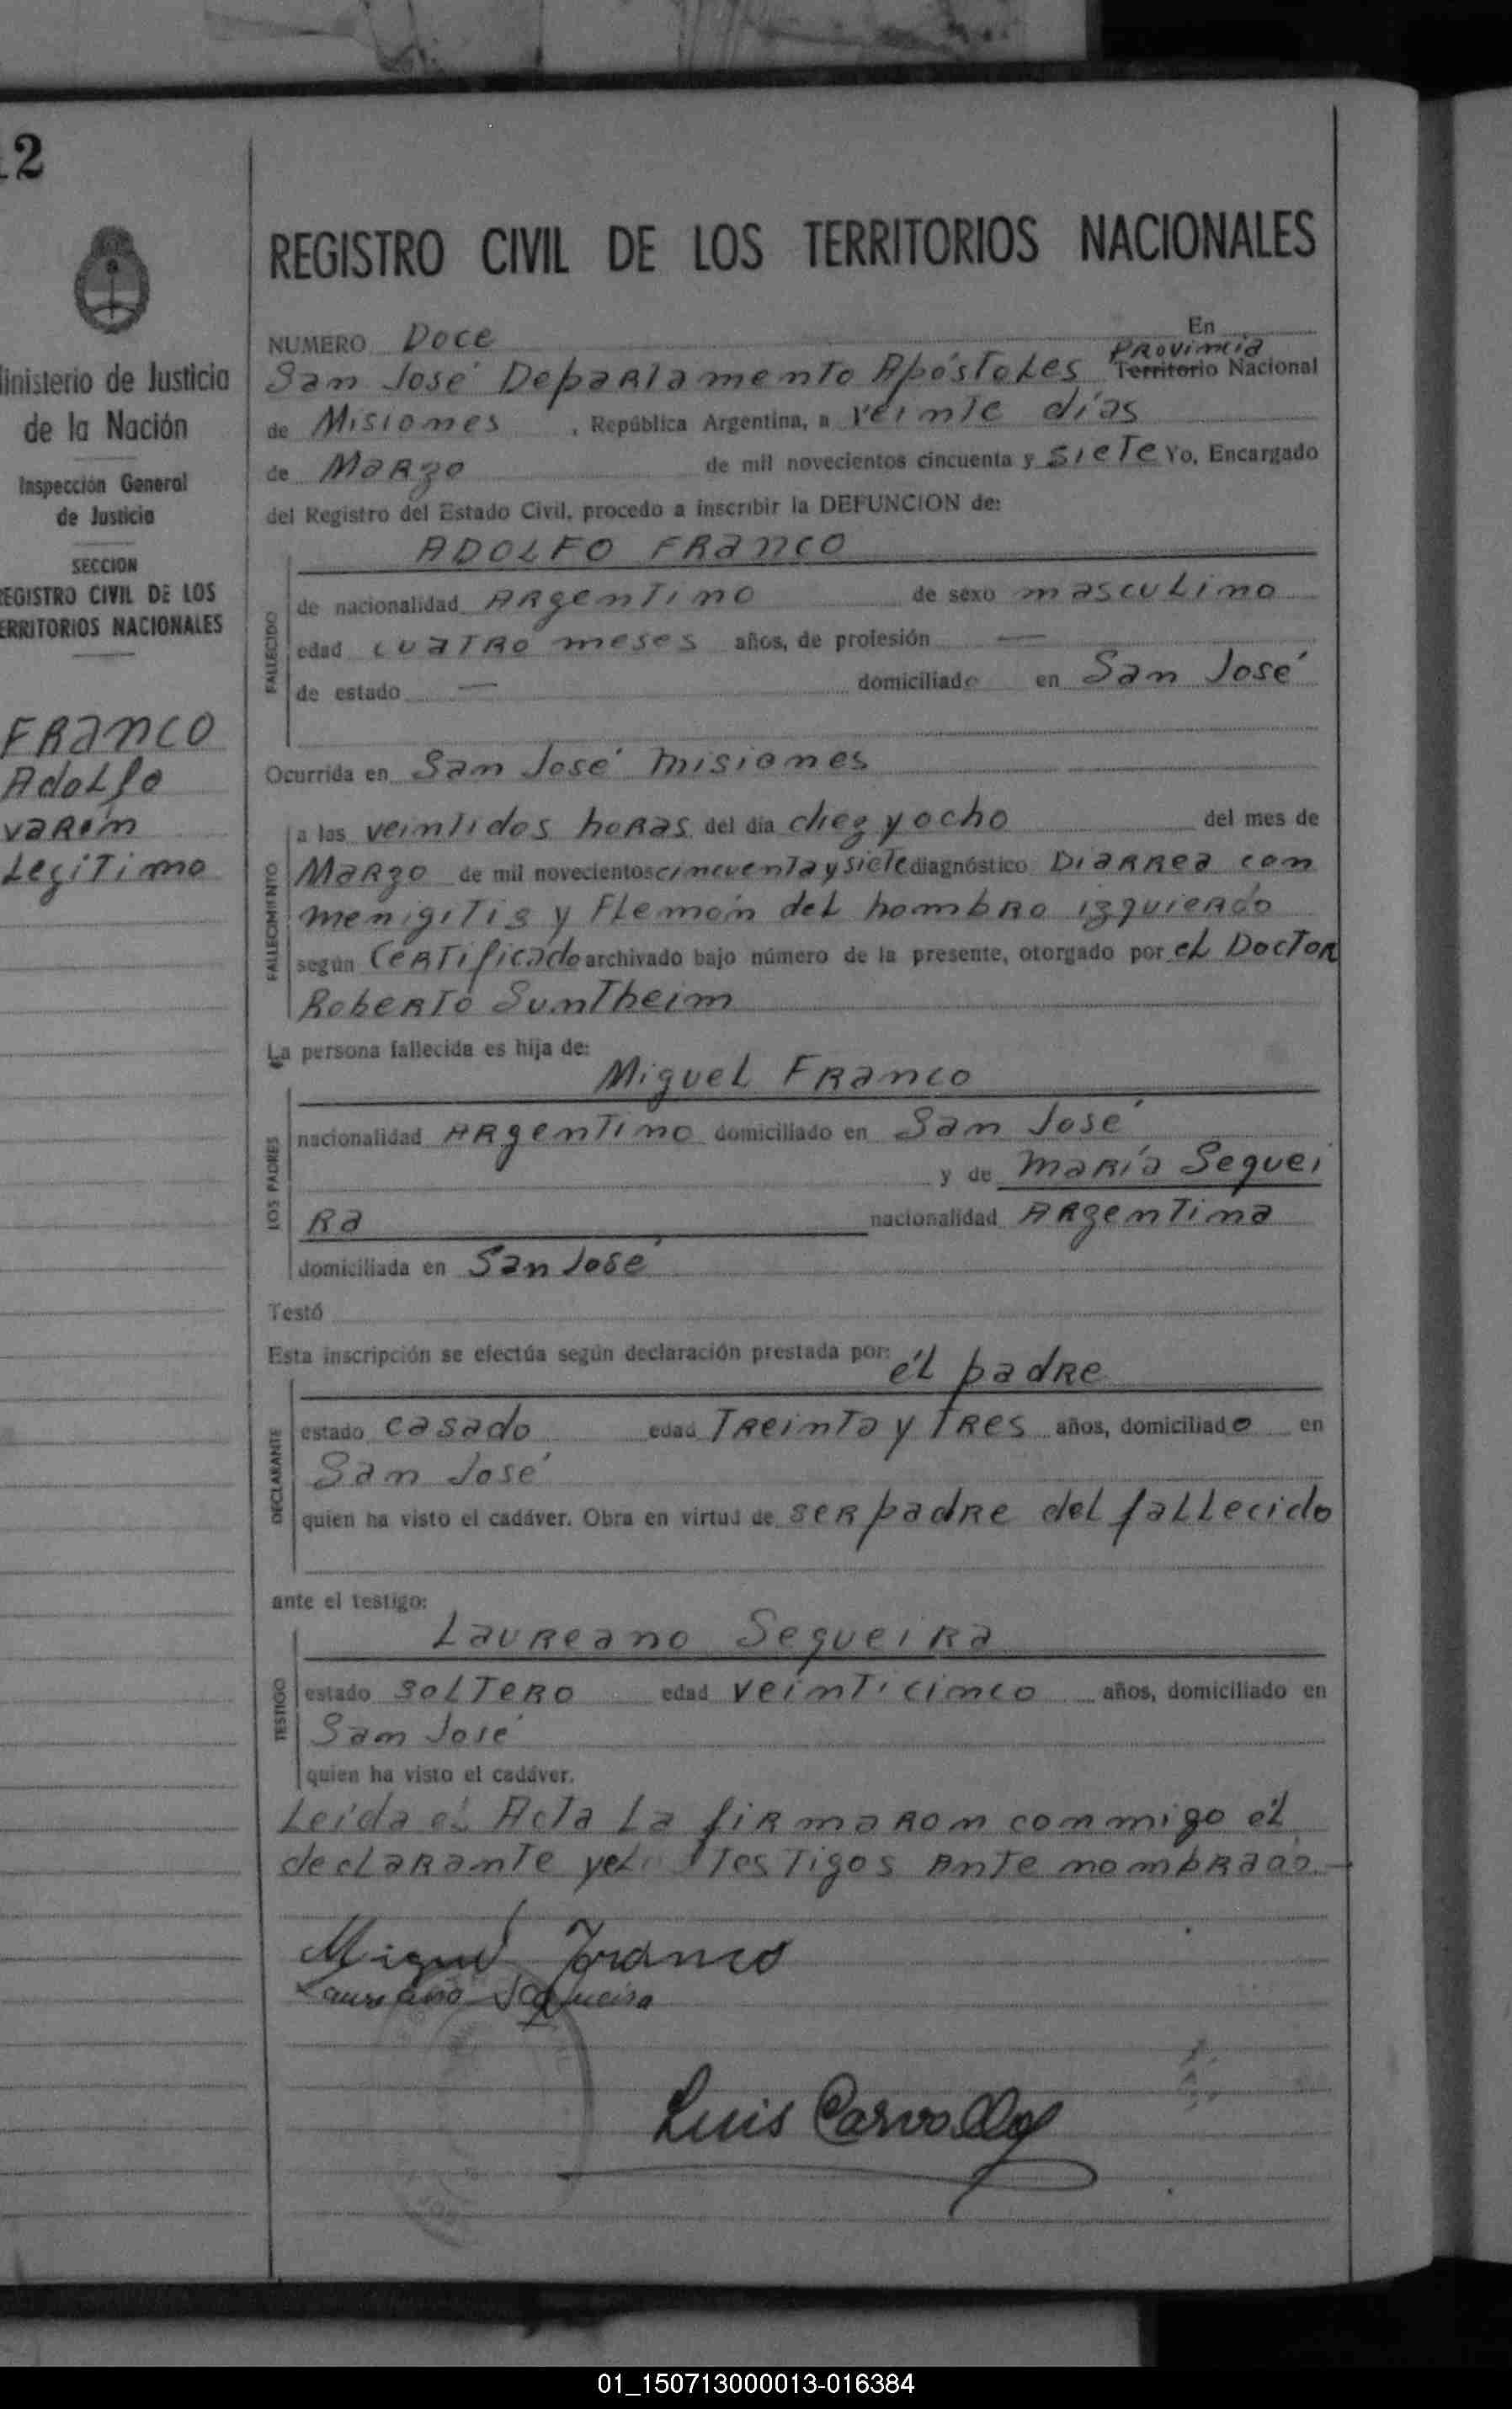 12
Ministerio de Justicia
de la Nación
Inspección General
de Justicia
SECCION
REGISTRO CIVIL DE LOS
TERRITORIOS NACIONALES
FRANCO
Adolfo
varón
Legitimo
REGISTRO CIVIL DE LOS TERRITORIOS NACIONALES
NUMERO Doce En
San José Departamento Apóstoles Provincia Territorio Nacional
de Misiones, República Argentina, a veinte días
de Marzo de mil novecientos cincuenta y siete Yo, Encargado
del Registro del Estado Civil, procedo a inscribir la DEFUNCION de:
ADOLFO FRANCO
FALLECIDO
de nacionalidad Argentino de sexo masculino
edad cuatro meses años, de profesión —
de estado — domiciliado en San José
Ocurrida en San José Misiones
FALLECIMIENTO
a las veintidos horas del día diez y ocho del mes de
Marzo de mil novecientos cincuenta y siete diagnóstico Diarrea con
menigitis y Flemón del hombro izquierdo
según Certificado archivado bajo número de la presente, otorgado por el Doctor
Roberto Suntheim
La persona fallecida es hija de:
Miguel Franco
LOS PADRES
nacionalidad Argentino domiciliado en San José
y de María Sequei
ra nacionalidad Argentina
domiciliada en San José
Testó
Esta inscripción se efectúa según declaración prestada por: él padre
DECLARANTE
estado casado edad Treinta y Tres años, domiciliado en
San José
quien ha visto el cadáver. Obra en virtud de ser padre del fallecido
ante el testigo:
Laureano Sequeira
TESTIGO
estado soltero edad veinticinco años, domiciliado en
San José
quien ha visto el cadáver.
Leída el Acta la firmaron conmigo él
declarante y el testigos ante nombrado.—
Miguel Franco
Laureano Sequeira
Luis Carvallo
01_150713000013-016384